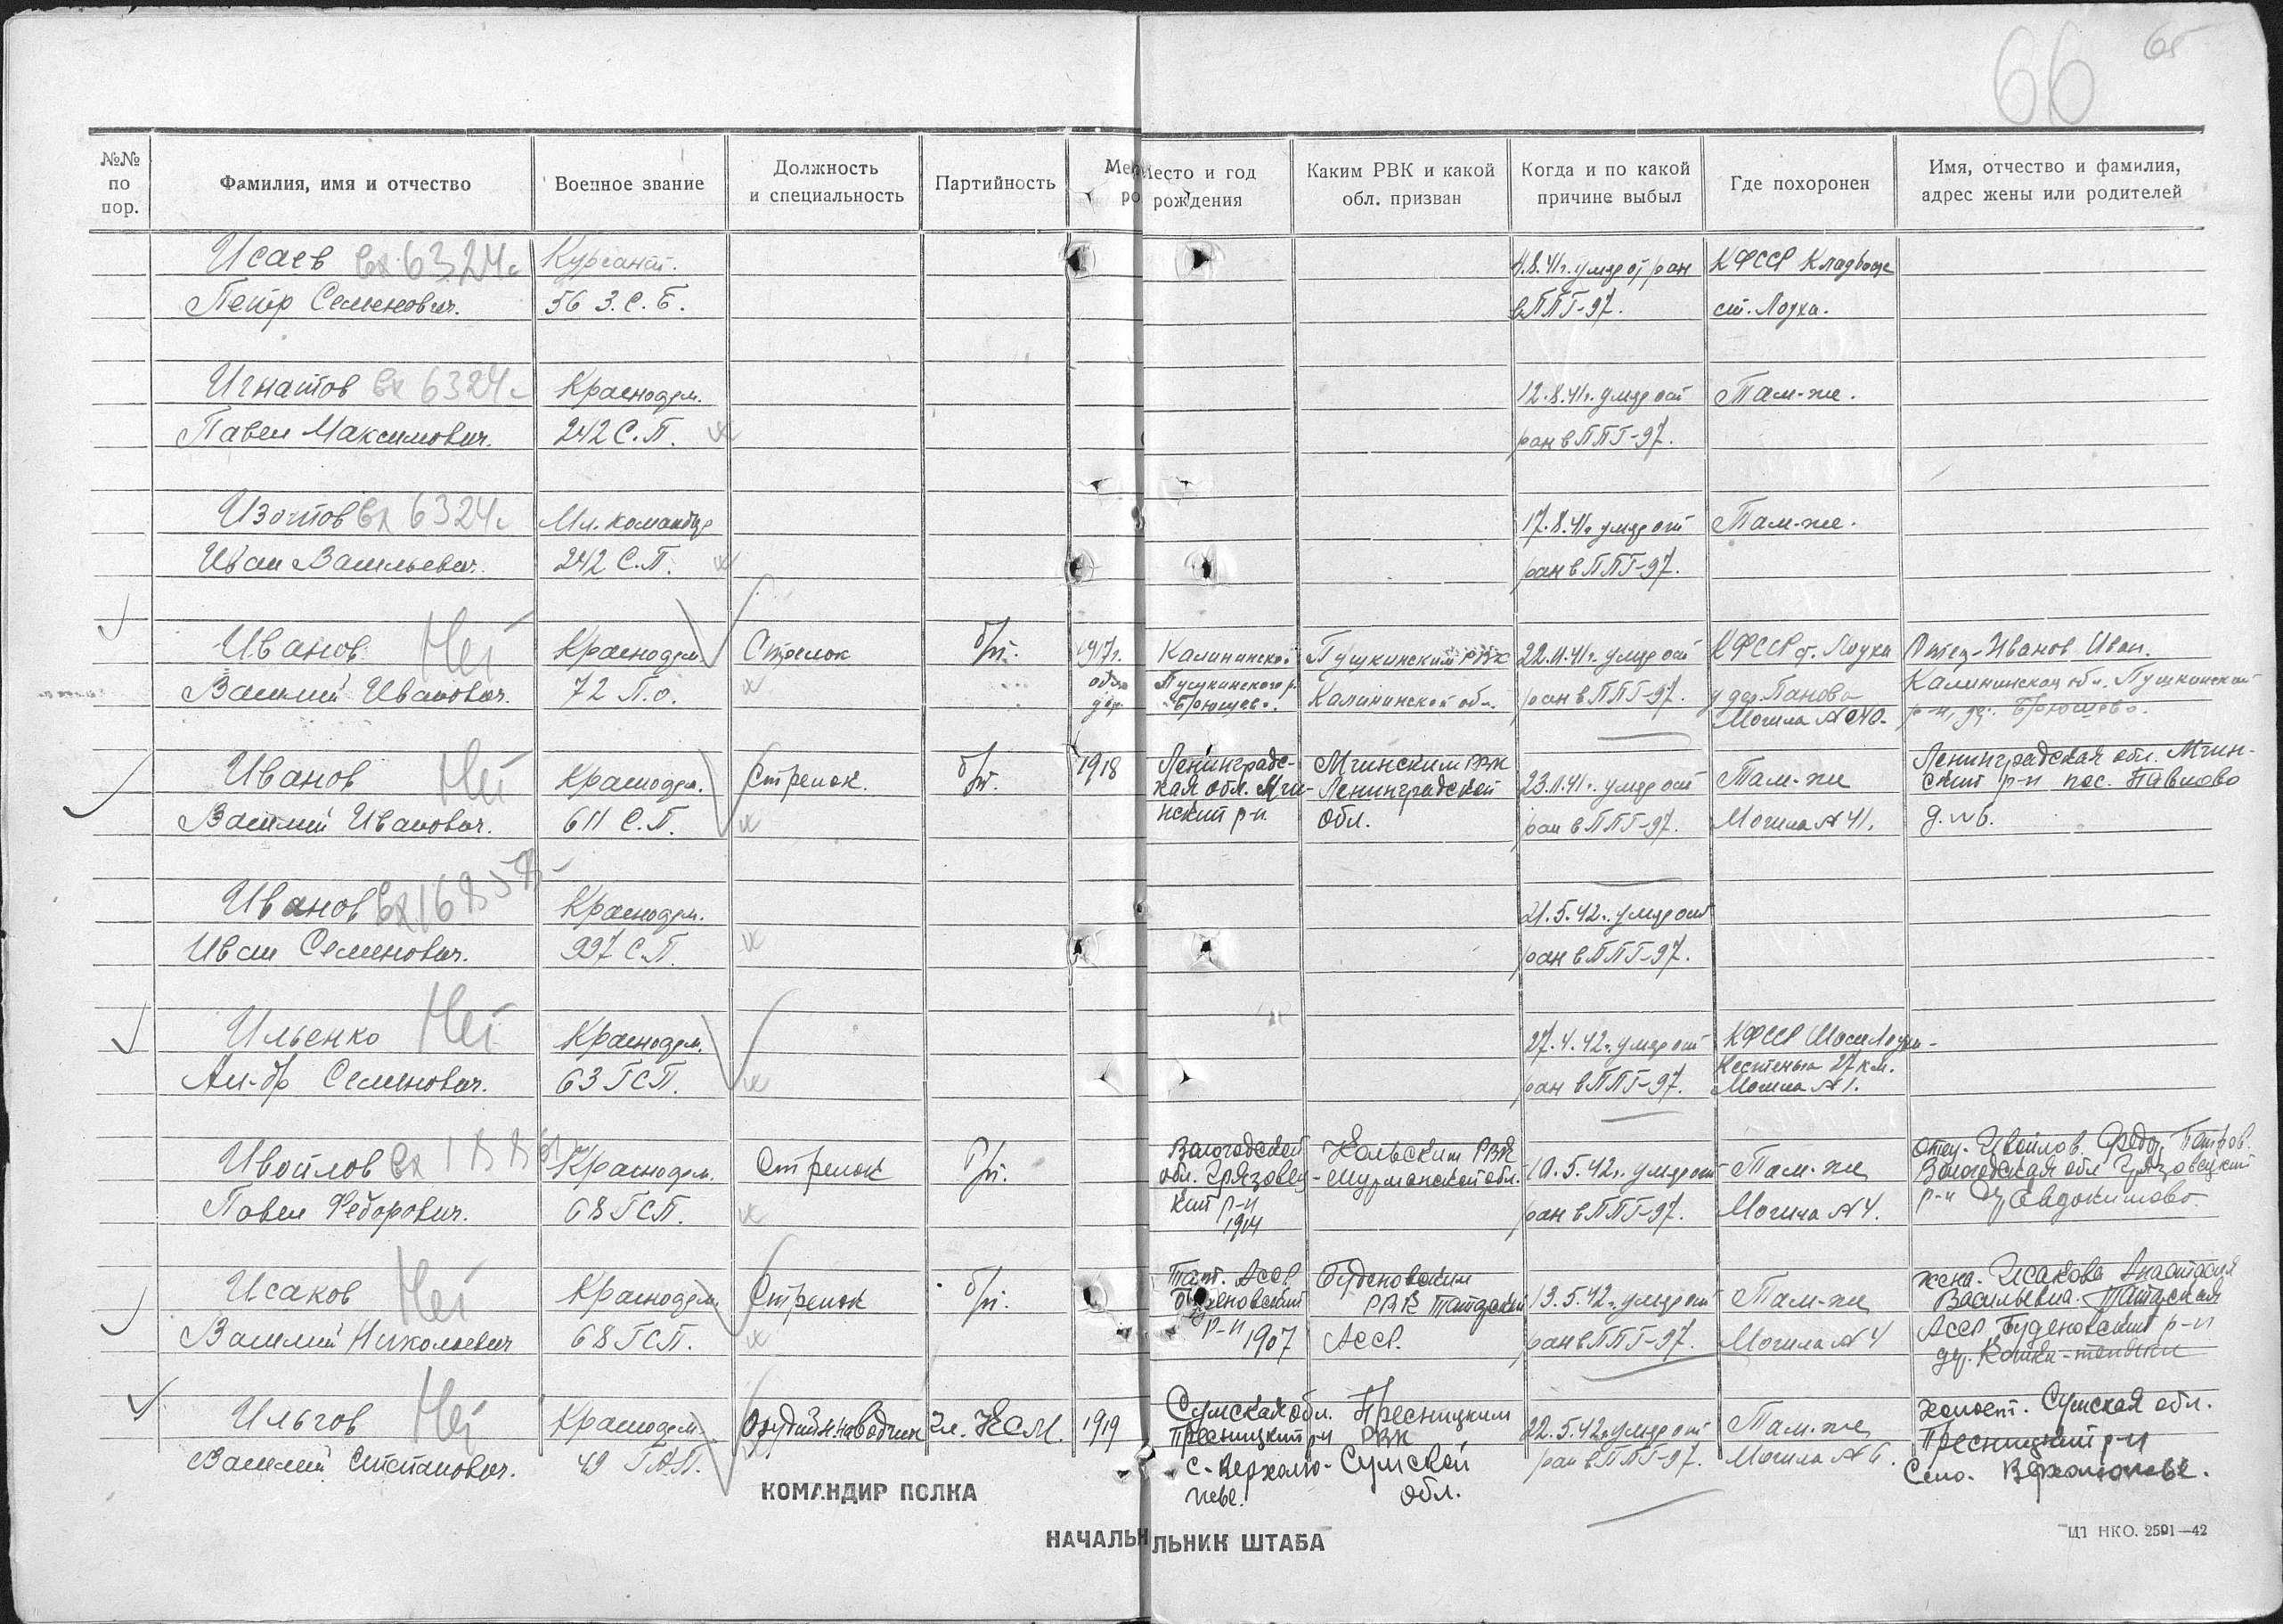 66 65
№№ по пор.
Фамилия, имя и отчество
Военное звание
Должность и специальность
Партийность
Место и год рождения
Каким РВК и какой обл. призван
Когда и по какой причине выбыл
Где похоронен
Имя, отчество и фамилия, адрес жены или родителей
Исаев вх 6324с Курсант. 4.8.41г. умер от ран КФССР Кладбище
Петр Семенович. 56 З.С.Б. в ППГ-97. ст. Лоуха.
Игнатов вх 6324с Красноарм. 12.8.41г. умер от Там-же.
Павел Максимович. 242 С.П. ран в ППГ-97.
Изотов вх 6324с Мл. командир 17.8.41г. умер от Там-же.
Иван Васильевич. 242 С.П. ран в ППГ-97.
Иванов Нет Красноарм. Стрелок б/п. 1917г. Калининской Пушкинским РВК 22.11.41г. умер от КФССР ст. Лоухи Отец-Иванов Иван.
Василий Иванович. 72 П.о. обл. Пушкинского р. Калининской обл. ран в ППГ-97. у дер. Паново Калининская обл. Пушкинский
дер. Брюшево. Могила №40. р-н, дер. Брюшево.
Иванов Нет Красноарм. Стрелок. б/п. 1918 Ленинградс- Мгинским РВК 23.11.41г. умер от Там-же Ленинградская обл. Мгин-
кая обл. Мги- Ленинградской ский р-н пос. Павлово
Василий Иванович. 611 С.П. нский р-н. обл. ран в ППГ-97. Могила №41. д.№6.
Иванов Красноарм. 21.5.42г. умер от
Иван Семенович. 997 С.П. ран в ППГ-97.
Ильенко Нет Красноарм. 27.4.42г. умер от КФССР Лоухи-
Кестеньга 27 км.
Ал-др Семенович. 63 ГСП. ран в ППГ-97. Могила №1.
Ивойлов вх Красноарм. Стрелок б/п. Вологодской Кольским РВК 10.5.42г. умер от Там-же Отец-Ивойлов Федор Петров.
обл. Грязовец- Мурманской обл. Вологодская обл Грязовецкий
Павел Федорович. 68 ГСП. кий р-н ран в ППГ-97. Могила №4. р-н д. Евдокимово
1914
Исаков Нет Красноарм. Стрелок б/п. Тат. АССР Буденовским 13.5.42г. умер от Там-же жена-Исакова Анастасия
Буденовский РВК Татарской Васильевна. Татарская
Василий Николаевич 68 ГСП. р-н 1907 АССР. ран в ППГ-97. Могила №4 АССР Буденовский р-н
дер.
Ильгов Нет Красноарм. Орудийн. наводчик Чл. ЛКСМ. 1919 Сумская обл. 22.5.42г. умер от Там-же холост. Сумская обл.
р-н РВК р-н
Василий Степанович. 49 ГАП. с. Верхолю- Сумской ран в ППГ-97. Могила №6. Село
обл.
КОМАНДИР ПОЛКА
НАЧАЛЬНИК ШТАБА
НКО. 2591—42